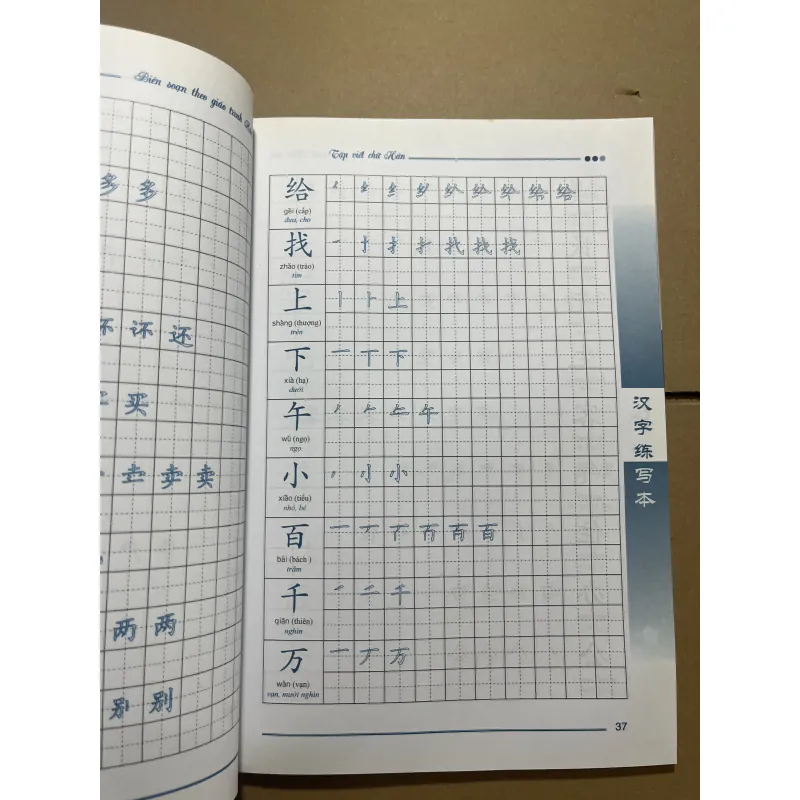 Biên soạn theo giáo trình
多 多
坏 还 还
买
卖 卖
两 两
别 别
Tập viết chữ Hán
给
gěi (cấp)
đưa, cho
找
zhǎo (trảo)
tìm
上
shàng (thượng)
trên
下
xià (hạ)
dưới
午
wǔ (ngọ)
ngọ
小
xiǎo (tiểu)
nhỏ, bé
百
bǎi (bách )
trăm
千
qiān (thiên)
nghìn
万
wàn (vạn)
vạn, mười nghìn
汉字练写本
37